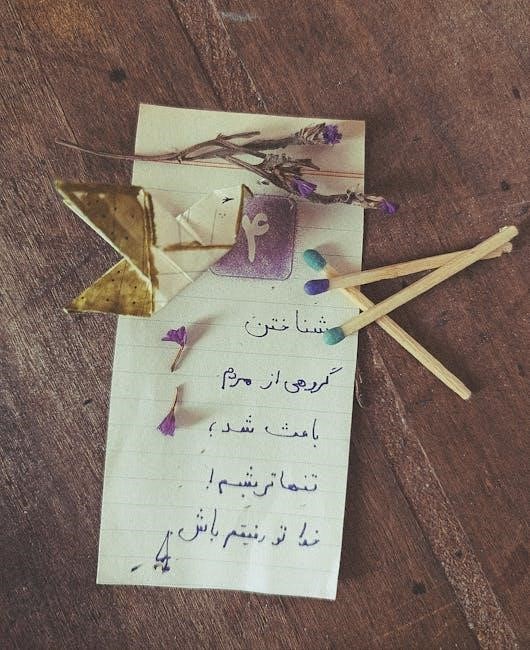 ۴
شناختن
گروهی از مردم
باعث شد؛
تنهاتر بشیم!
خدا تو رفیقم باش.